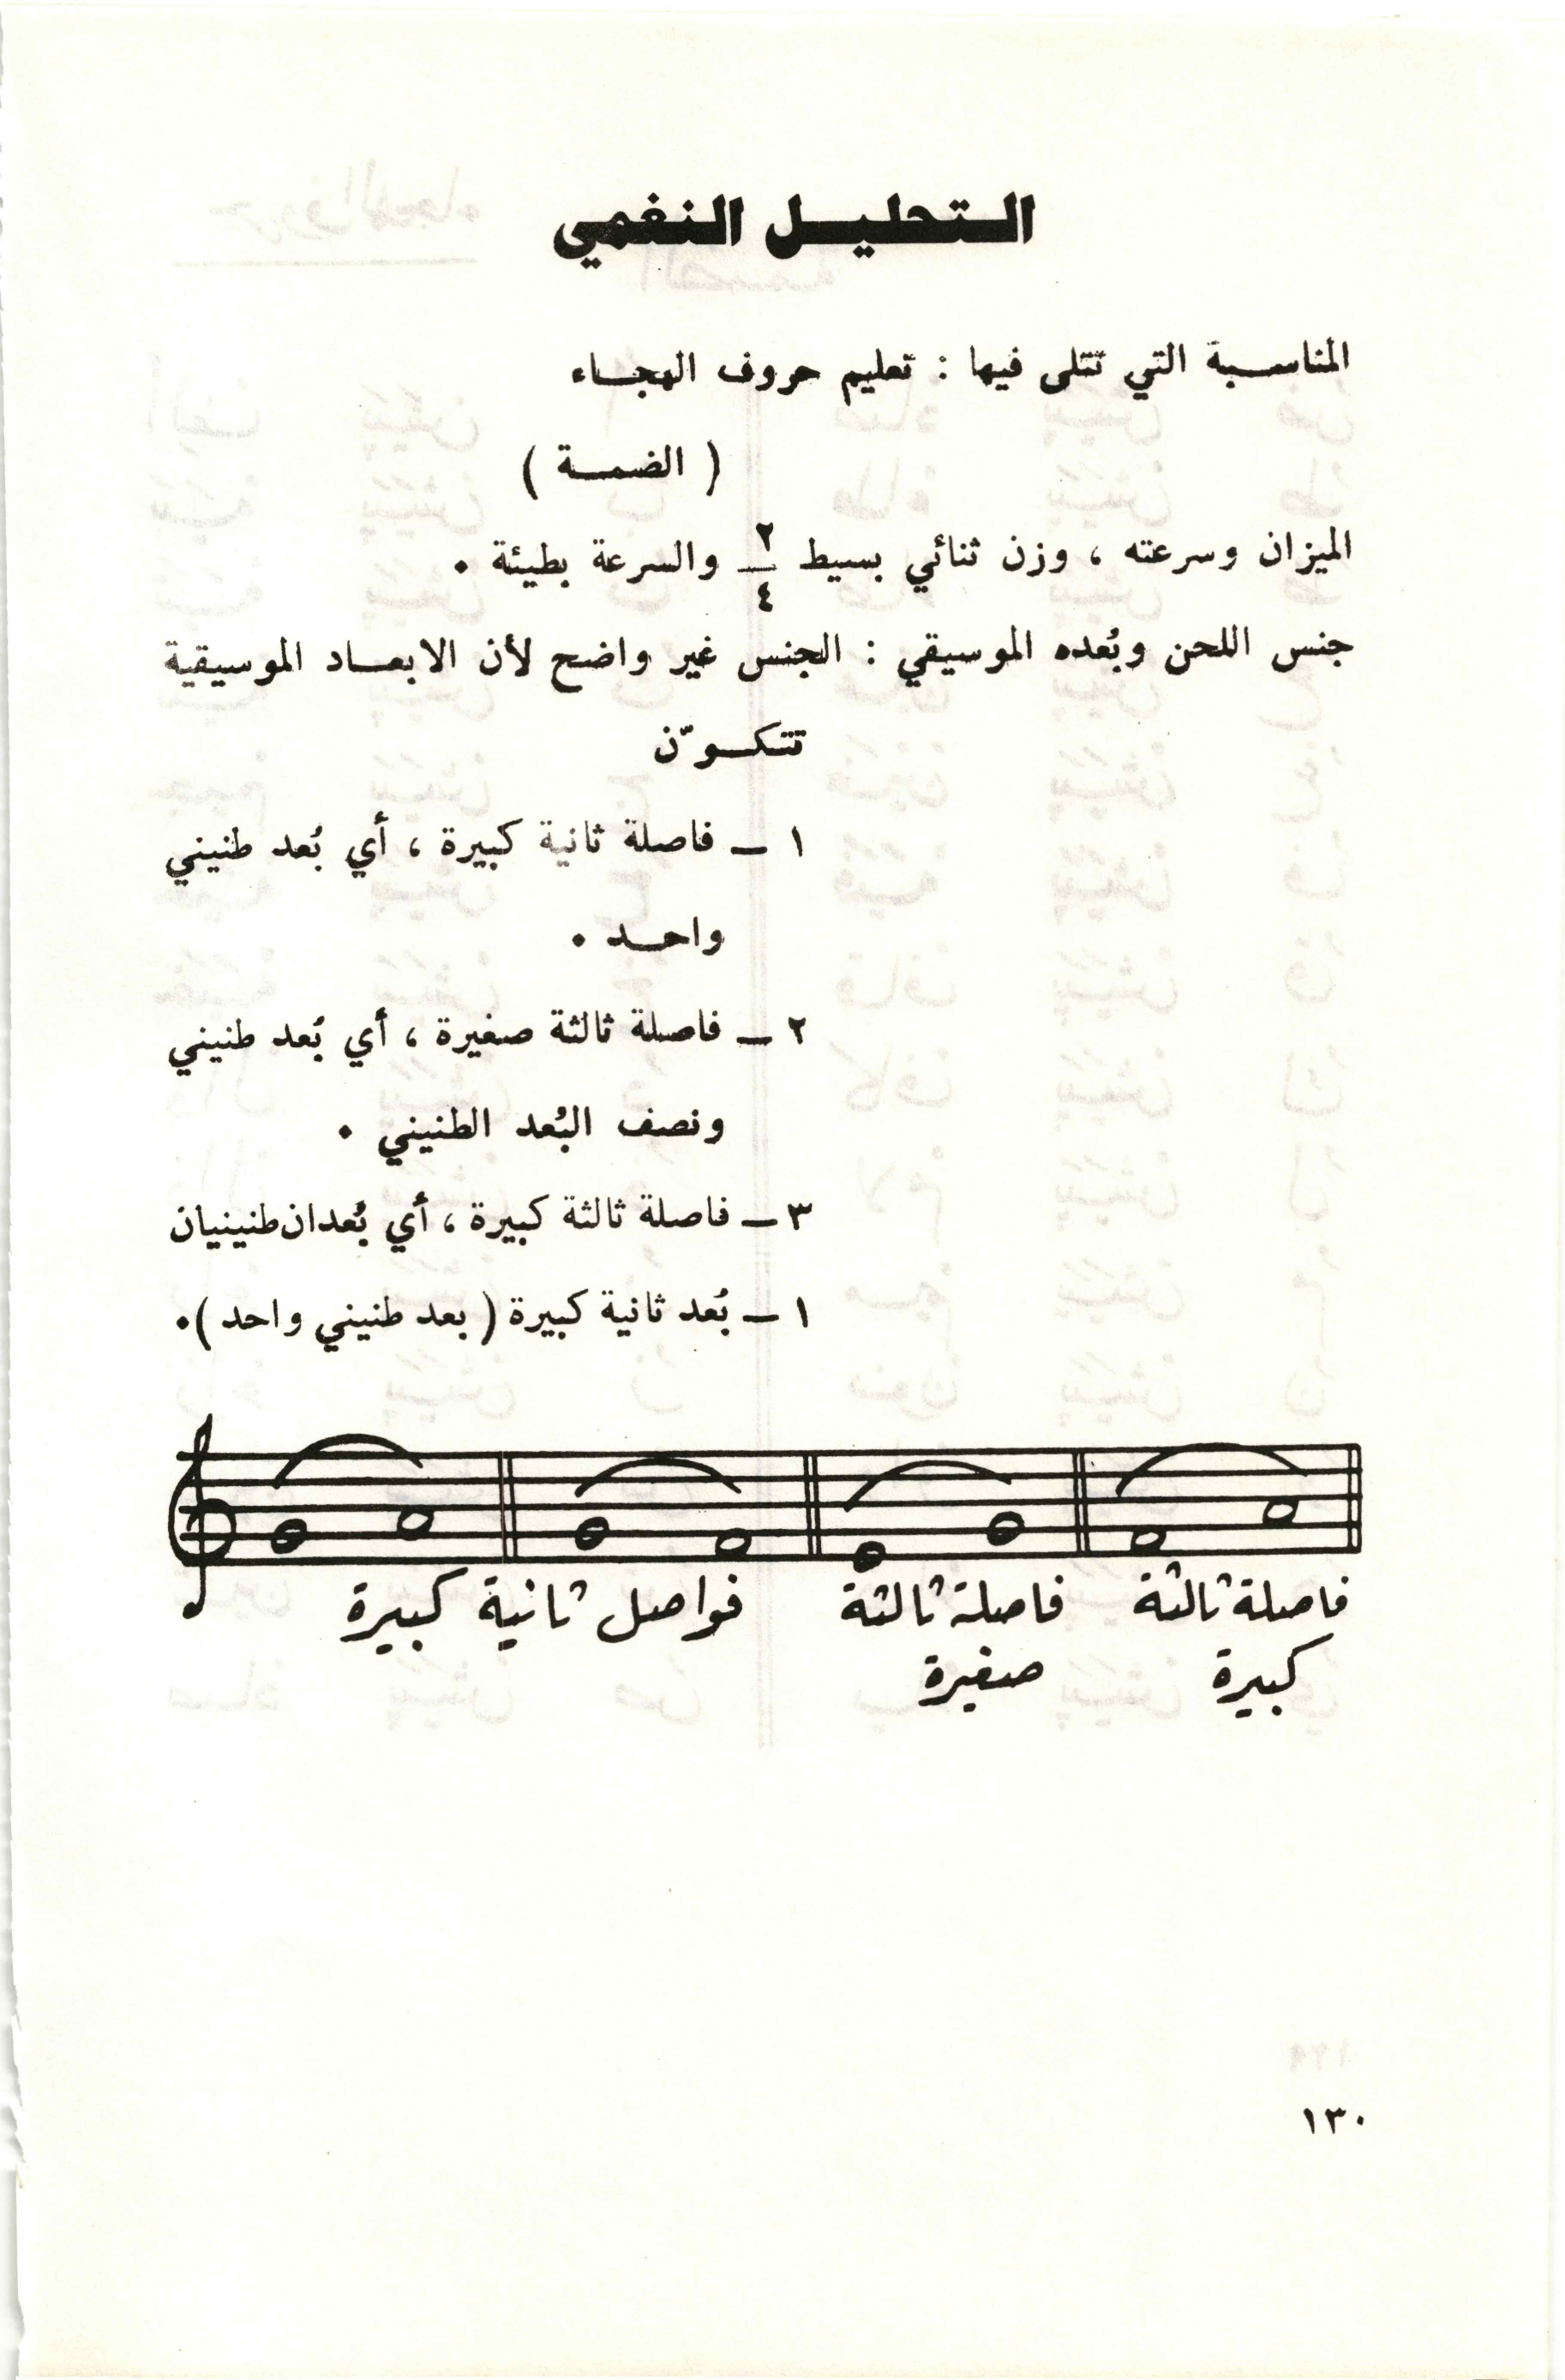 التحليل النغمي
المناسبة التي تتلى فيها : تعليم حروف الهجاء
( الضمة )
الميزان وسرعته ، وزن ثنائي بسيط ٢/٤ والسرعة بطيئة .
جنس اللحن وبُعده الموسيقي : الجنس غير واضح لأن الابعاد الموسيقية
تتكوّن
١ ـ فاصلة ثانية كبيرة ، أي بُعد طنيني
واحد .
٢ ـ فاصلة ثالثة صغيرة ، أي بُعد طنيني
ونصف البُعد الطنيني .
٣ ـ فاصلة ثالثة كبيرة ، أي بُعدان طنينيان
١ ـ بُعد ثانية كبيرة ( بعد طنيني واحد ) .
فاصلة ثالثة فاصلة ثالثة فواصل ثانية كبيرة
كبيرة صغيرة
١٣٠